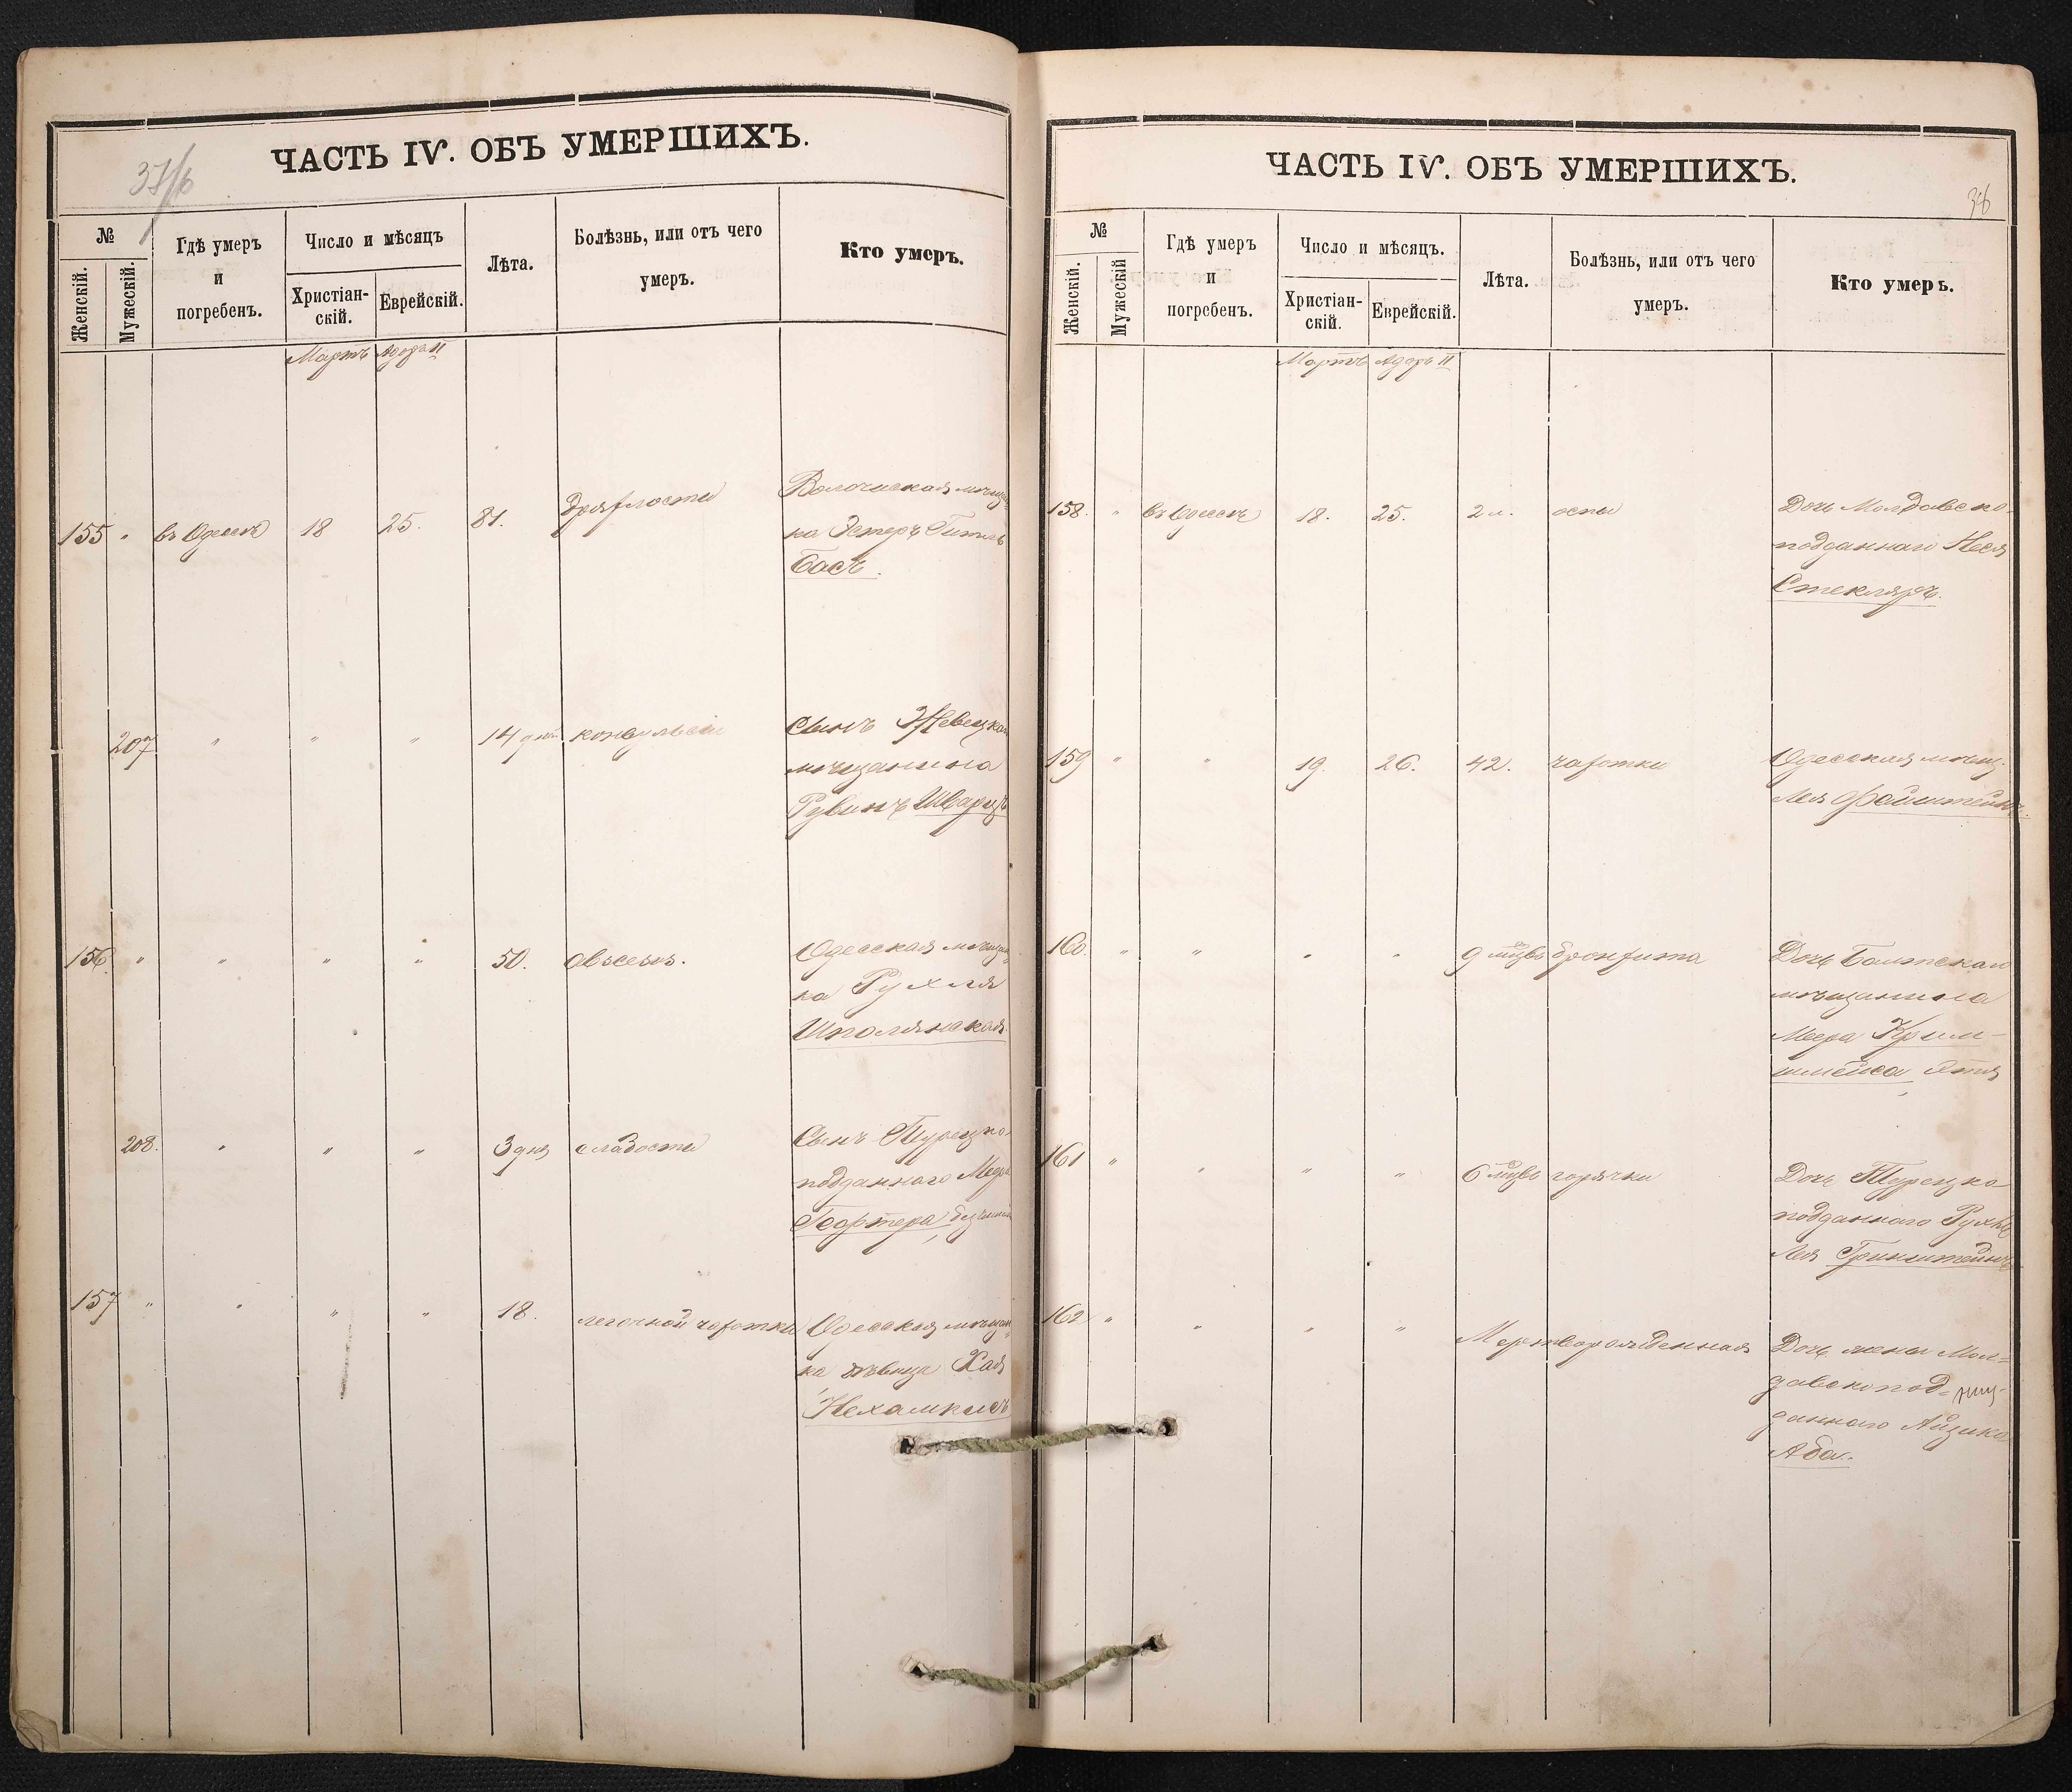 ЧАСТЬ IV. ОБЪ УМЕРШИХЪ.
№
Женскій.
Мужескій.
Гдѣ умеръ
и
погребенъ.
Число и мѣсяцъ
Христіан-
скій.
Еврейскій.
Лѣта.
Болѣзнь, или отъ чего
умеръ.
Кто умеръ.
Мартъ Адаръ II
155 " въ Одессѣ 18 25. 81. дряхлости
ка Эстеръ Гитля
Басъ.
207 " " " 14 дней конвульсіи Сынъ
мѣщанина
Рувинъ Шварцъ
156. " " " " 50. абсцесъ. Одесская мѣщан-
ка Рухля
Шполянская.
208. " " " 3 дня слабости Сынъ Турецко-
подданнаго
157 " " " " 18. легочной чахотки Одесская мѣщан-
ка дѣвица Хая
Нехамкисъ
ЧАСТЬ IV. ОБЪ УМЕРШИХЪ.
№
Женскій.
Мужескій
Гдѣ умеръ
и
погребенъ.
Число и мѣсяцъ.
Христіан-
скій.
Еврейскій.
Лѣта.
Болѣзнь, или отъ чего
умеръ.
Кто умеръ.
Мартъ Адаръ II
158. " въ Одессѣ 18. 25. 2 л. оспы Дочь Молдавско-
подданнаго Неся
Стекляръ.
159 " " 19. 26. 42. чахотки Одесская мѣщ.
Лея Файнштейнъ.
160. " " " " 9 мцвъ бронхита Дочь Балтскаго
мѣщанина
Меера
161 " " " " 6 мцвъ горячки Дочь Турецко
подданнаго Рухля
Лея Гринштейнъ
162 " " " " Мертворожденная Дочь жены Мол-
давскопод-
даннаго Айзика
Аба.